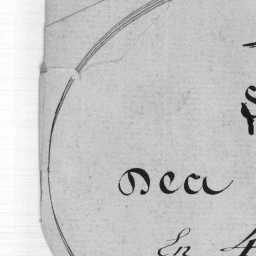 Dea
En 4